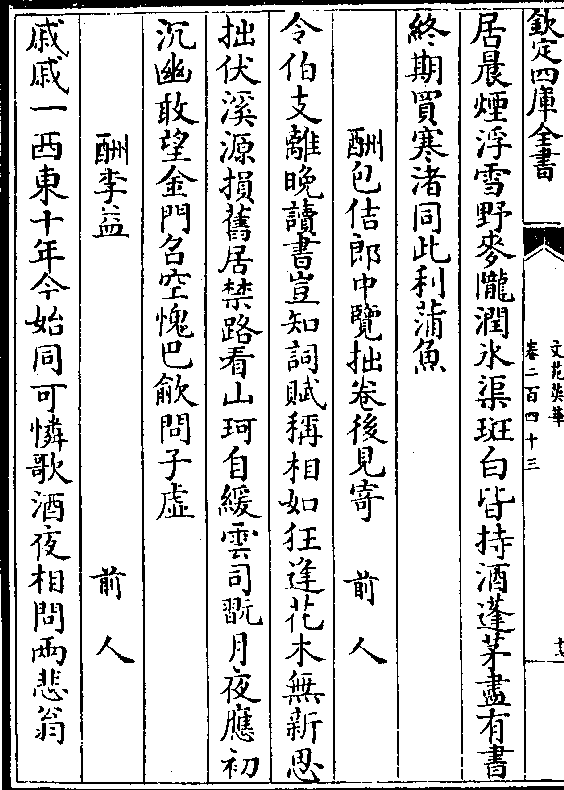 欽定四庫全書
文苑英華
卷二百四十三
居晨煙浮雪野麥隴潤氷渠斑白皆持酒蓬茅盡有書
終期買寒渚同此利蒲魚
酬包佶郎中覽拙卷後見寄 前人
令伯支離晚讀書豈知詞賦稱相如狂逢花木無新思
拙伏溪源損舊居禁路看山珂自緩雲司翫月夜應初
沉幽敢望金門召空愧巴歈問子虛
酬李益 前人
戚戚一西東十年今始同可憐歌酒夜相問兩悲翁